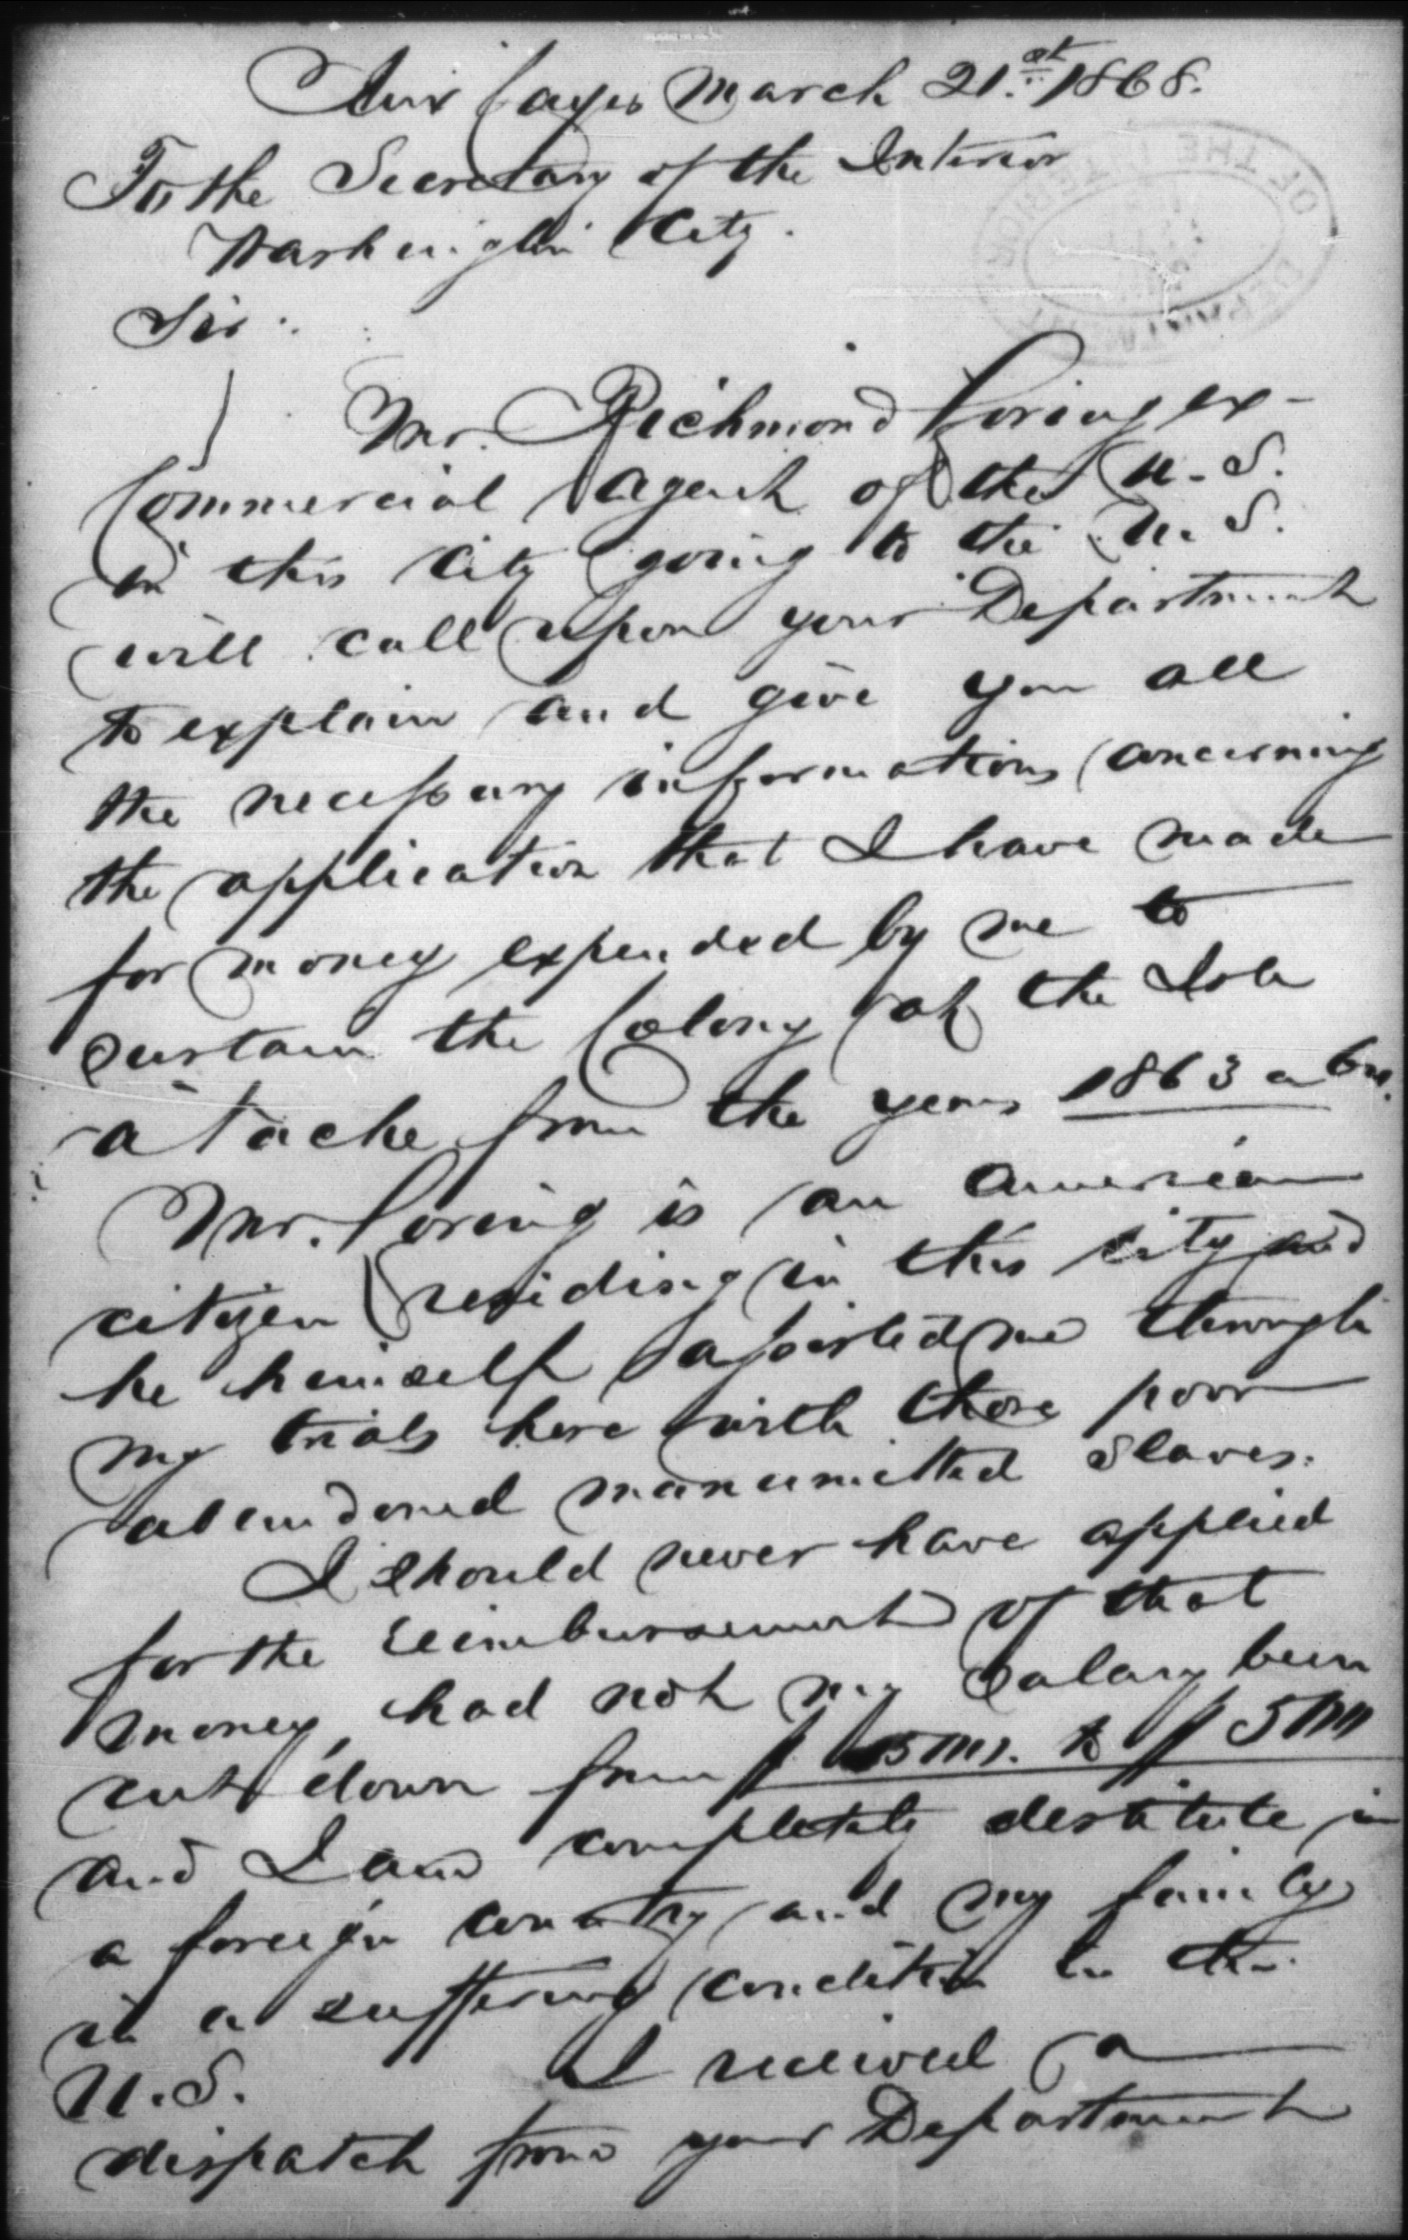 Aux Cayes March 21.st 1868.
To the Secretary of the Interior
Washington City.
Sir:
Mr. Richmond Loring ex-
Commercial Agent of the U.S.
in this City going to the U.S.
will call upon your Department
to explain and give you all
the necessary informations concerning
the application that I have made
for money expended by me to
sustain the Colony at the Isle
a Vache from the years 1863 a
Mr. Loring is an American
citizen residing in this city and
he himself assisted me through
my trials here with those poor
abandoned manumitted slaves.
I should never have applied
for the reimbursement of that
money had not my salary been
cut down from to
and I am completely destitute in
a foreign country and my family
in a suffering condition in the
U.S. I received a
dispatch from your Department
OF THE INTERIOR
DEPARTMENT